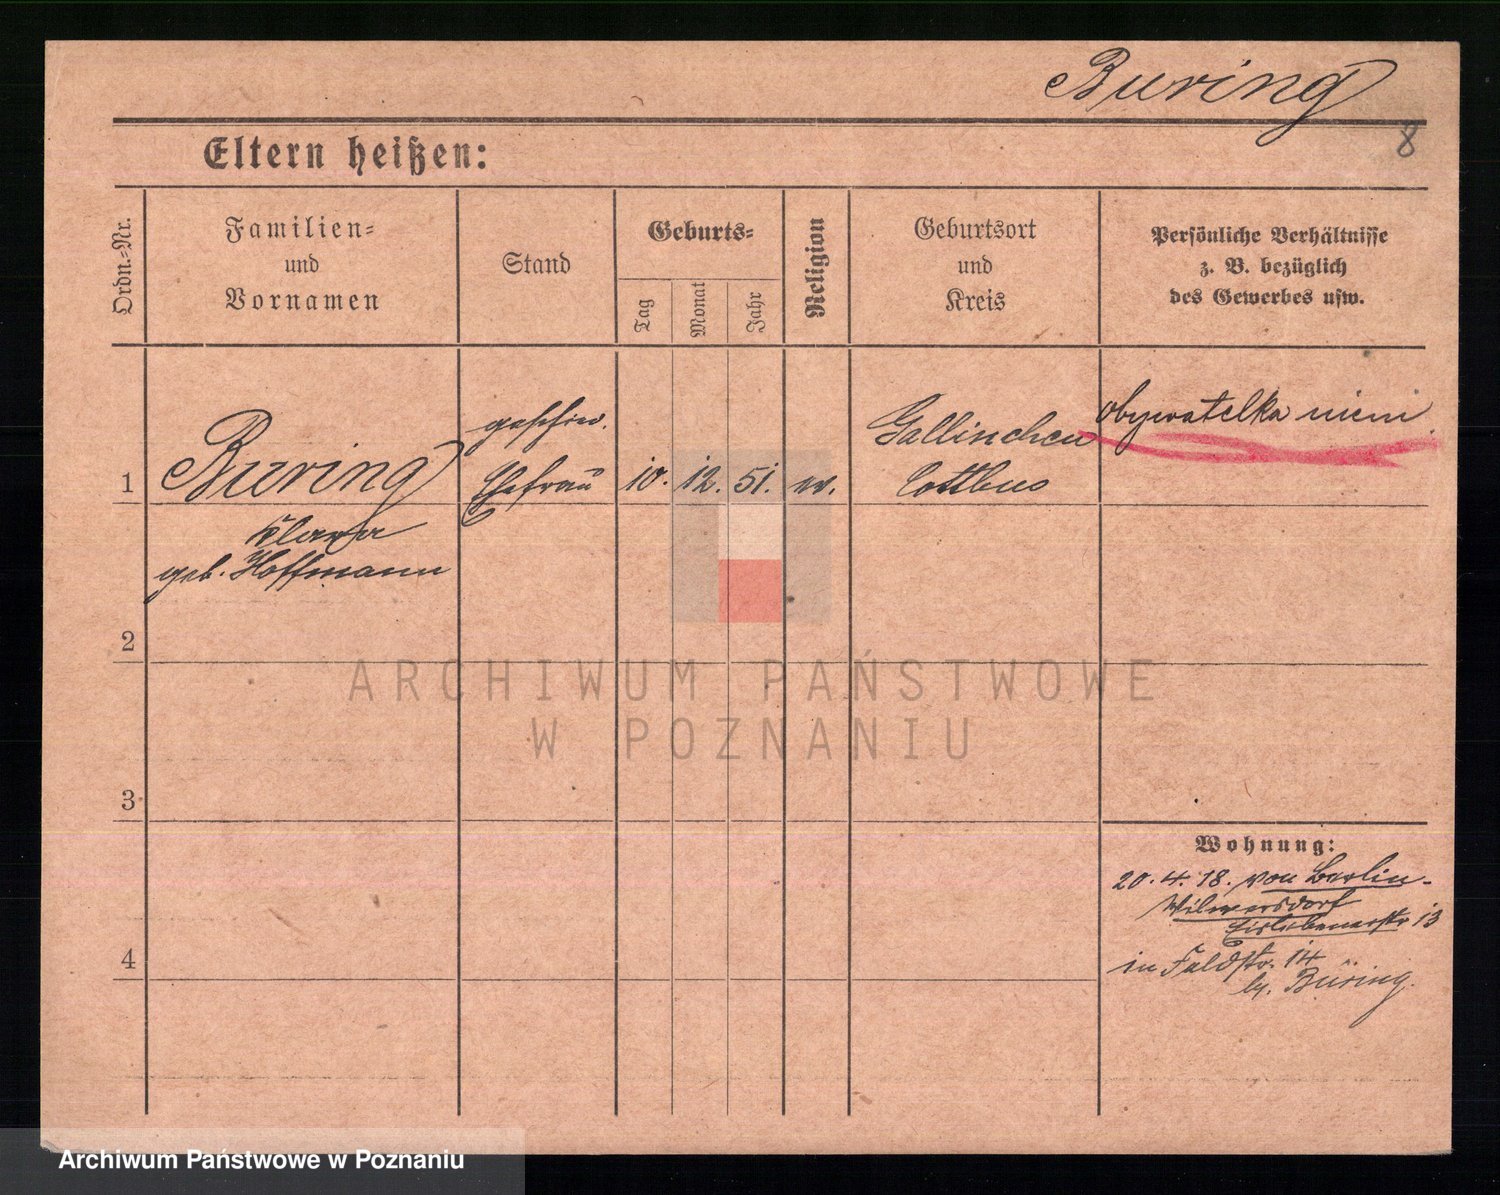 Buring
8
Eltern heißen:
Ordn.-Nr.
Familien-
und
Vornamen
Stand
Geburts-
Tag
Monat
Jahr
Religion
Geburtsort
und
Kreis
Persönliche Verhältnisse
z. B. bezüglich
des Gewerbes usw.
1
Buring
Clara
geb. Hoffmann
geschied.
Ehefrau
10. 12. 51. ev.
Gallinchen
Cottbus
obywatelka niem.
2
3
4
Wohnung:
20.4.18. von Berlin-
Wilmersdorf
Eislebenerstr 13
in Feldstr. 14
b/. Büring.
ARCHIWUM PAŃSTWOWE
W POZNANIU
Archiwum Państwowe w Poznaniu